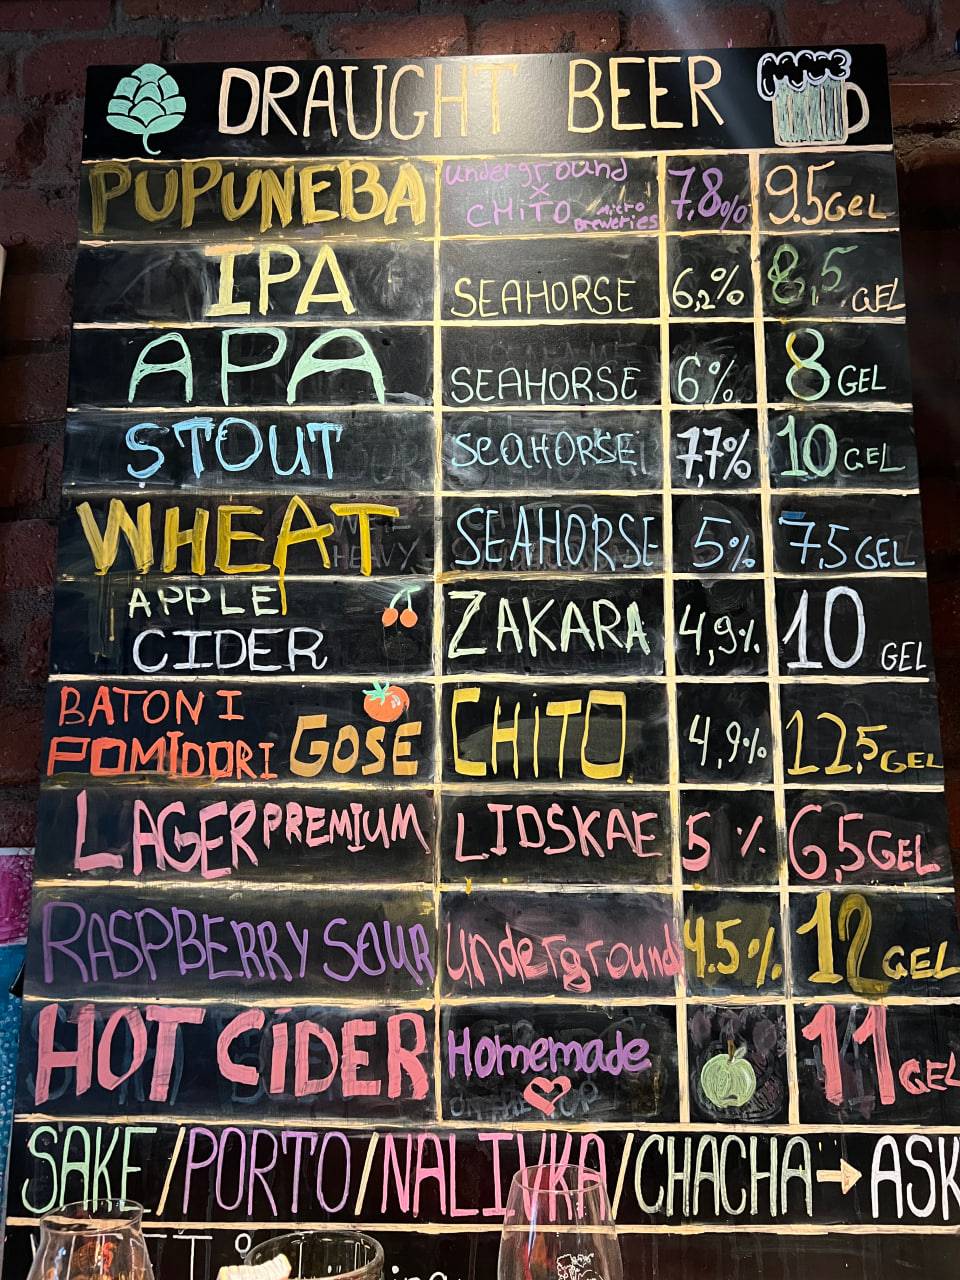 DRAUGHT BEER
PUPUNEBA underground x CHiTO micro Breweries 7,8% 9.5 GEL
IPA SEAHORSE 6,2% 8,5 GEL
APA SEAHORSE 6% 8 GEL
STOUT SEAHORSE 7,7% 10 GEL
WHEAT SEAHORSE 5% 7,5 GEL
APPLE CIDER ZAKARA 4,9% 10 GEL
BATONI POMIDORI GOSE CHiTO 4,9% 12,5 GEL
LAGER PREMIUM LIDSKAE 5% 6,5 GEL
RASPBERRY SOUR underground 4.5% 12 GEL
HOT CiDER Homemade 11 GEL
SAKE/PORTO/NALIVKA/CHACHA→ASK